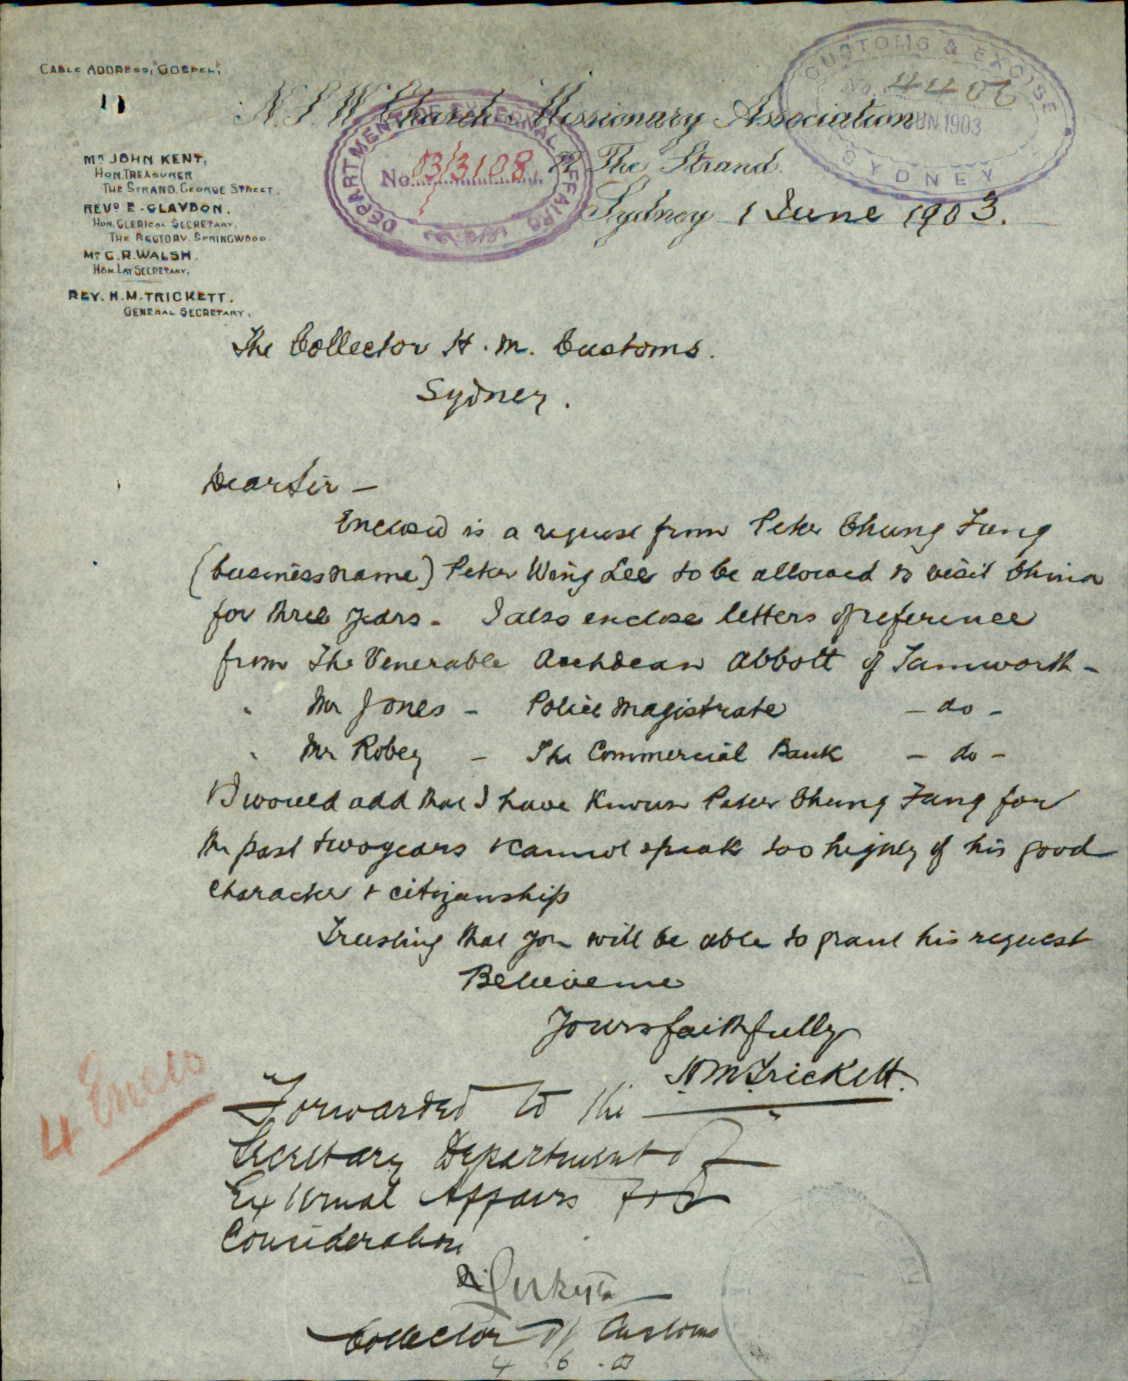 Cable Address, "Gospel",
N.S.W. Church Missionary Association
The Strand.
Sydney 1 June 1903.
CUSTOMS & EXCISE
No. 4406
JUN 1903
SYDNEY
DEPARTMENT OF EXTERNAL AFFAIRS
No. 03/3108
Mr JOHN KENT,
Hon. Treasurer
The Strand, George Street.
REVD E. CLAYDON.
Hon. Clerical Secretary.
The Rectory, Springwood
Mr C. R. WALSH.
Hon. Lay Secretary.
REV. H. M. TRICKETT.
General Secretary.
The Collector H. M. Customs.
Sydney.
Dear Sir —
Enclosed is a request from Peter Chung Fung
(business name) Peter Wing Lee to be allowed to visit China
for three years - I also enclose letters of reference
from The Venerable Archdean Abbott of Tamworth -
" Mr Jones - Police Magistrate - do -
" Mr Robey - The Commercial Bank - do -
I would add that I have known Peter Chung Fung for
the past two years & cannot speak too highly of his good
character & citizenship
Trusting that you will be able to grant his request
Believe me
Yours faithfully
H M Trickett.
4 Enclo
Forwarded to the
Secretary Department of
External Affairs for
Consideration
Collector of Customs
4 6 . 03